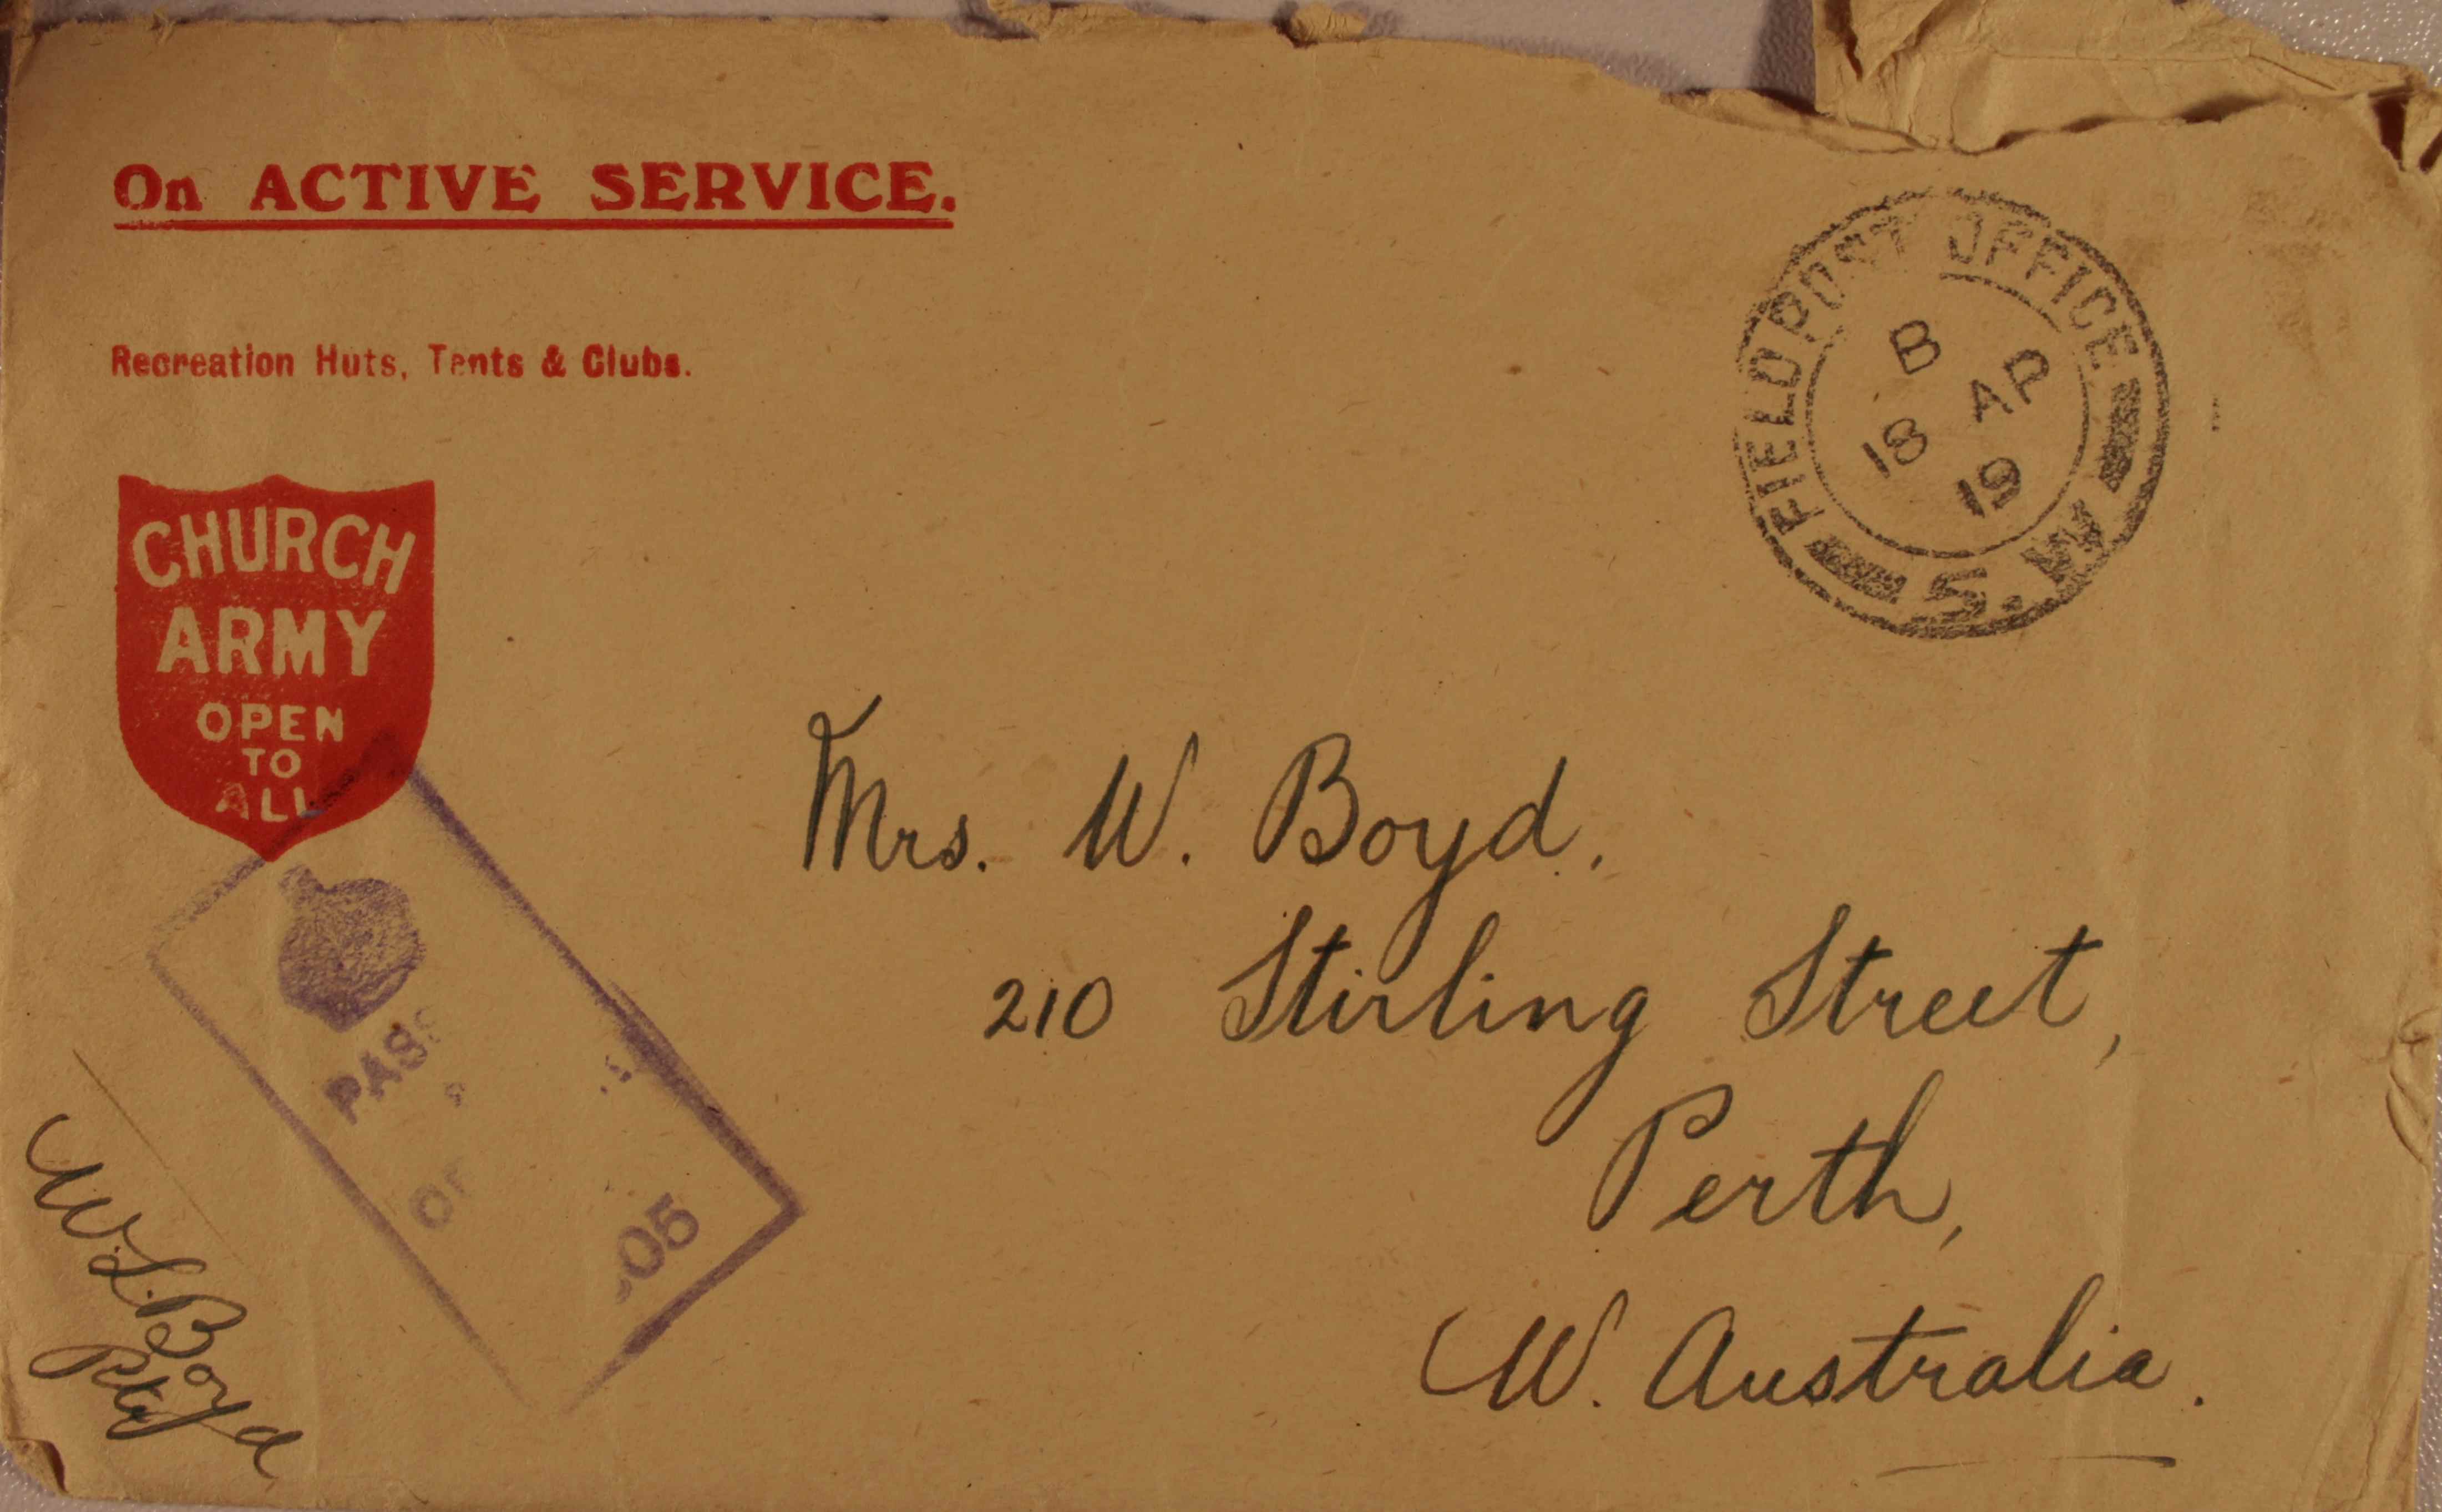 On ACTIVE SERVICE.
Recreation Huts, Tents & Clubs.
CHURCH
ARMY
OPEN
TO
ALL
FIELD POST OFFICE
B
18 AP
19
S.W.
Mrs. W. Boyd.
210 Stirling Street,
Perth,
W. Australia.
PASS
OF
05
W.L. Boyd
Pte